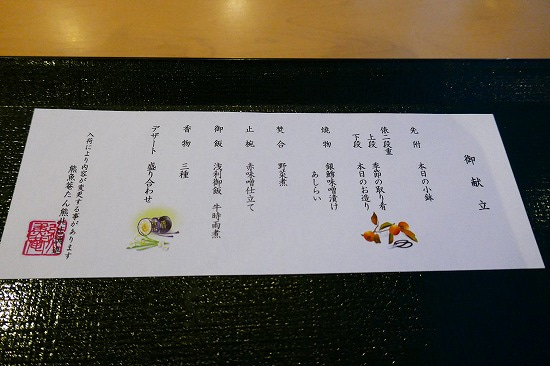 御献立
先附 本日の小鉢
俵二段重
上段 季節の取り肴
下段 本日のお造り
焼物 銀鱈味噌漬け
あしらい
焚合 野菜煮
止椀 赤味噌仕立て
御飯 浅利御飯 牛時雨煮
香物 三種
デザート 盛り合わせ
入荷により内容が変更する事があります
熊魚菴たん熊北店